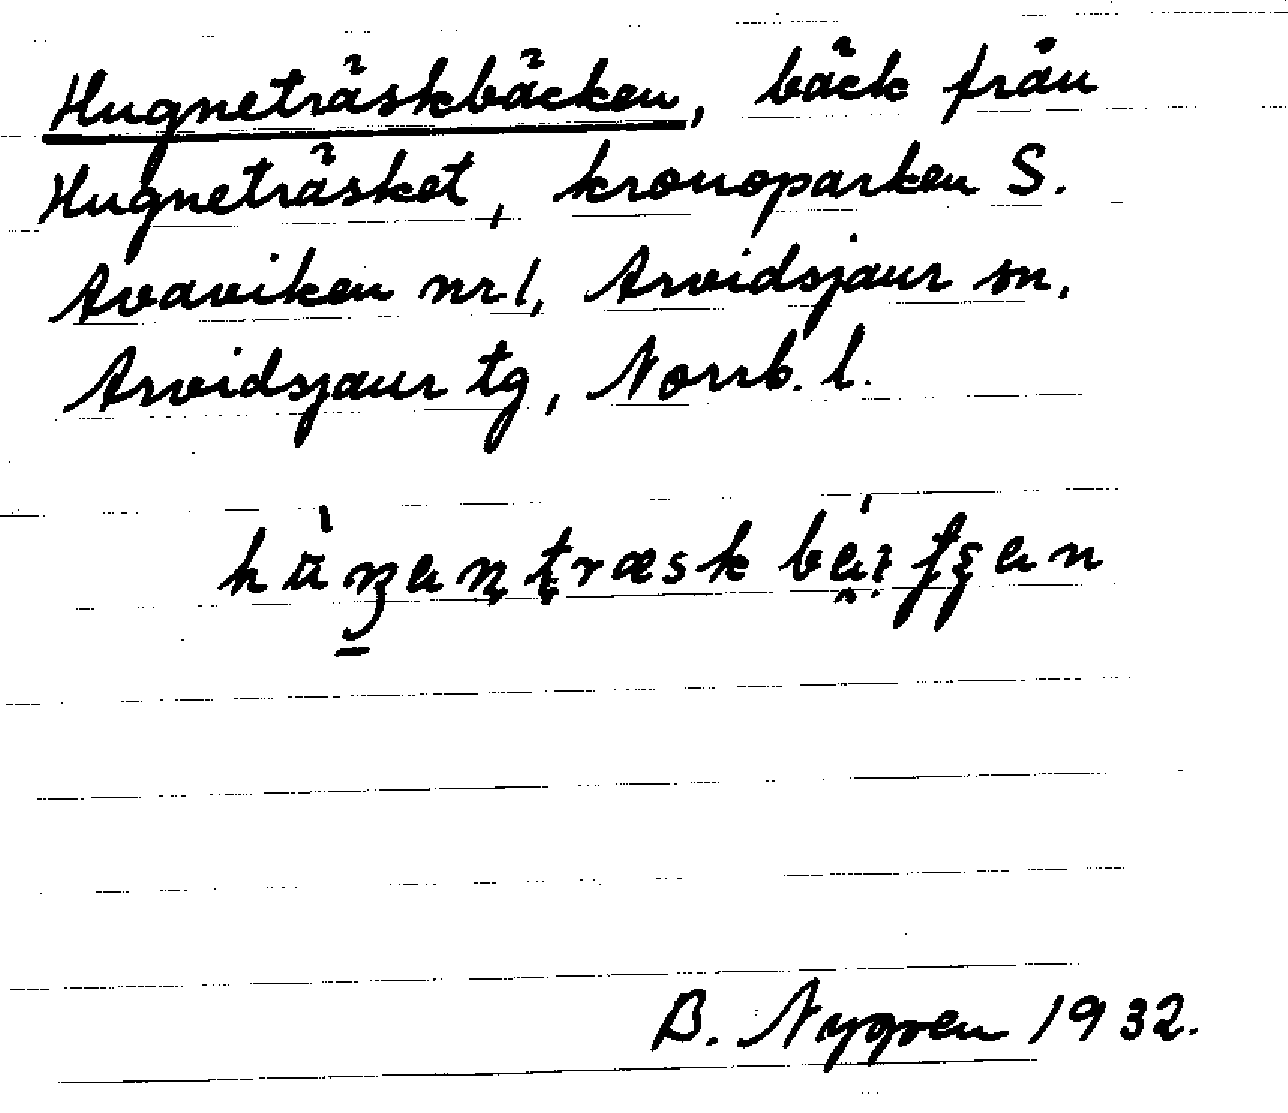 Hugneträskbäcken, bäck från
Hugneträsket, kronoparken S.
Avaviken nr 1, Arvidsjaur sn,
Arvidsjaur tg, Norrb. l.
B. Nygren 1932.